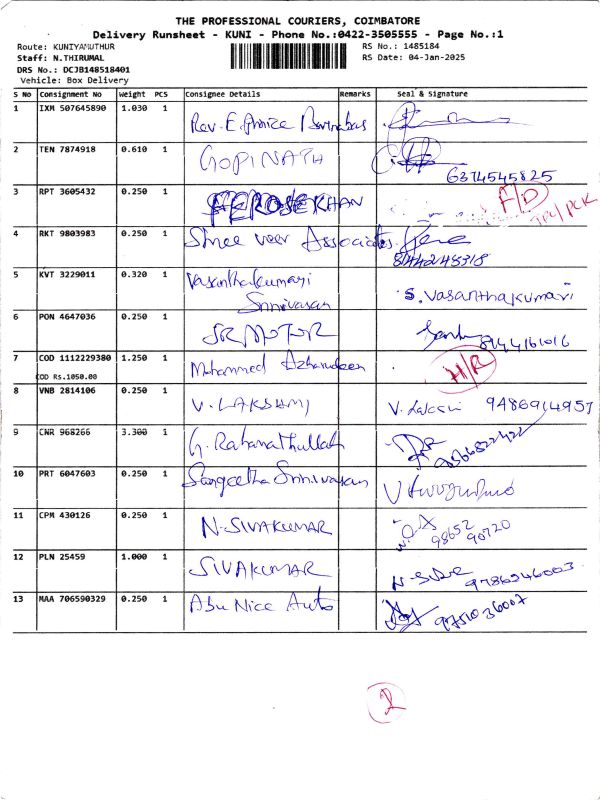 THE PROFESSIONAL COURIERS, COIMBATORE
Delivery Runsheet - KUNI - Phone No.:0422-3505555 - Page No.:1
Route: KUNIYAMUTHUR
RS No.: 1485184
Staff: N.THIRUMAL
RS Date: 04-Jan-2025
DRS No.: DCJB148518401
Vehicle: Box Delivery
S No Consignment No Weight PCS Consignee Details Remarks Seal & Signature
1 IXM 507645890 1.030 1 Rev. E.
2 TEN 7874918 0.610 1 GOPINATH
6374545825
3 RPT 3605432 0.250 1 FEROSEKHAN F/D
4 RKT 9803983 0.250 1 Shree veer Associates
5 KVT 3229011 0.320 1 Vasanthakumari S. Vasanthakumari
Srinivasan
6 PON 4647036 0.250 1 SR MOTOR 8144161016
7 COD 1112229380 1.250 1 Mohammed Azharudeen H/R
COD Rs.1050.00
8 VNB 2814106 0.250 1 V. LAKSHMI V. 9486914957
9 CNR 968266 3.300 1 G. Rahamathullah
10 PRT 6047603 0.250 1 Sangeetha Srinivasan
11 CPM 430126 0.250 1 N-SIVAKUMAR
98652
90720
12 PLN 25459 1.000 1 SIVAKUMAR 9786246003
13 MAA 706590329 0.250 1 Abu Nice Auto 9751036007
2